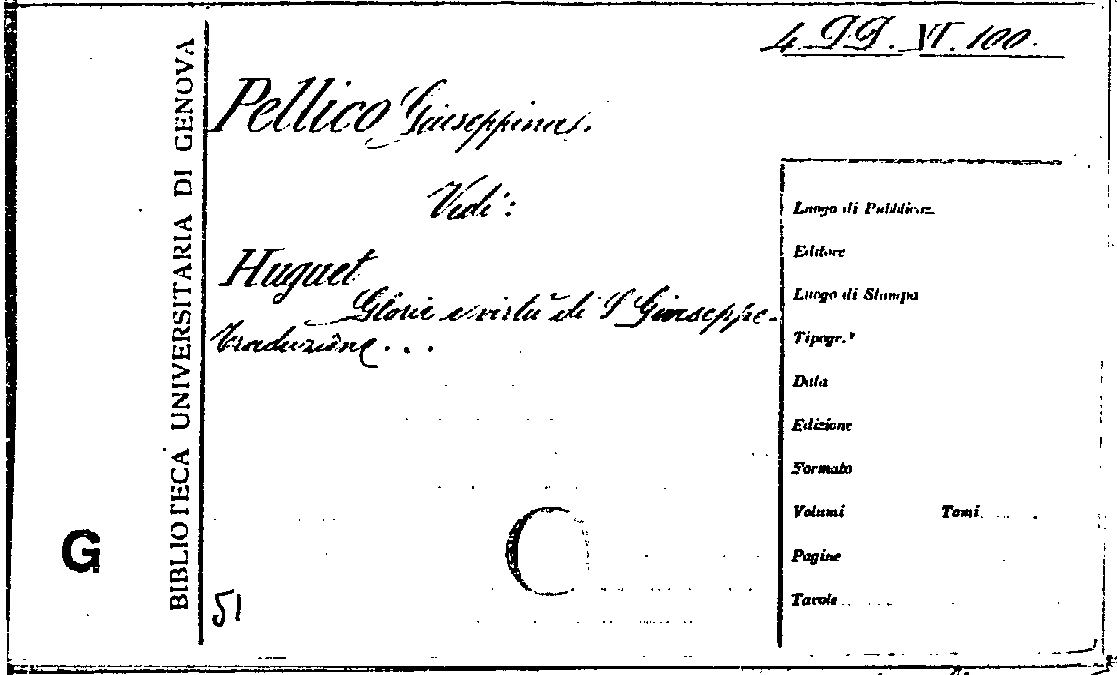 4 GG. VI. 100.
Pellico Giuseppina.
Vedi:
Huguet
Glorie e virtù di S Giuseppe.
traduzione...
BIBLIOTECA UNIVERSITARIA DI GENOVA
G
51
Luogo di Pubblicaz.
Editore
Luogo di Stampa
Tipogr.º
Data
Edizione
Formato
Volumi Tomi
Pagine
Tavole